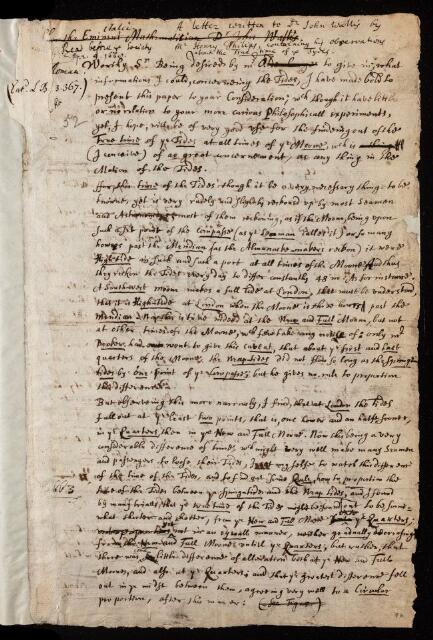 Italic A letter written to Dr John Wallis by
the Eminent Mathematician Dr John Wallis
Mr Henry Philips, containing his observations
about the True time of ye Tydes.
Worthy Sr. Being desired by to give in, what
informations I could, concerning the Tides, I have made bold to
present this paper to your Consideration; wch though it have little
or no relation to your more curious Philosophicall experiments,
yet, I hope, will be of very good use for the finding out of the
True time of ye Tides at all times of ye Moone, wch is
(I conceive) of as great concernement, as any thing in the
Motion of the Tides.
For the time of the Tides, though it be a very necessary thing to be
knowne, yet is very rudely and slightly reckond up by most Seamen
and most of them reckoning, as if the Moon, being upon
such a point of the Compasse (as ye Seaman calles it) or so many
howers past the Meridian (as the Almanack-makers reckon) it were
High tide in such and such a port at all times of the Moone. And thus
they reckon the Tides every day to differ constantly 48 m. As for instance,
A Southwest moon makes a full tide at London, that must be understood,
that it is High tide at London when the Moone is three howers past the
Meridian. Now this is true indeed at the New and Full Moon, but not
at other times of the Moone, wch few take any notice of; only Mr
Booker, hath wont to give this caveat, that about ye first and last
quarters of the Moone, the Neap tides did not flow so long as the Spring
tides by one point of ye Compasse; but he gives no rule to proportion
this difference.
But observing this more narrowly, I find, that at London the Tides
fall out at ye least two points, that is, one hower and an halfe sooner,
in ye Quarters, then in ye New and Full Moone. Now this being a very
considerable difference of time, wch might very well make many Seamen
and passengers to loose their Tides, I sett my selfe to watch this difference
of the time of the Tides, and to find out some Rule, how to proportion the
time of the Tides between ye Spring tides and the Neap tides, and I found
by many trialls, that ye true time of the Tides might be found out to be some-
what shorter and shorter, from ye New and Full Moone to ye Quarters;
yet not in an equall manner, neither gradually decreasing
from the New and Full Moone untill ye Quarters; but rather, that
there was little difference of alteration both at ye New and Full
Moones, and also at ye Quarters; and that ye greatest difference fell
out in ye midst between them, agreeing very well to a Circular
proportion, after this manner: